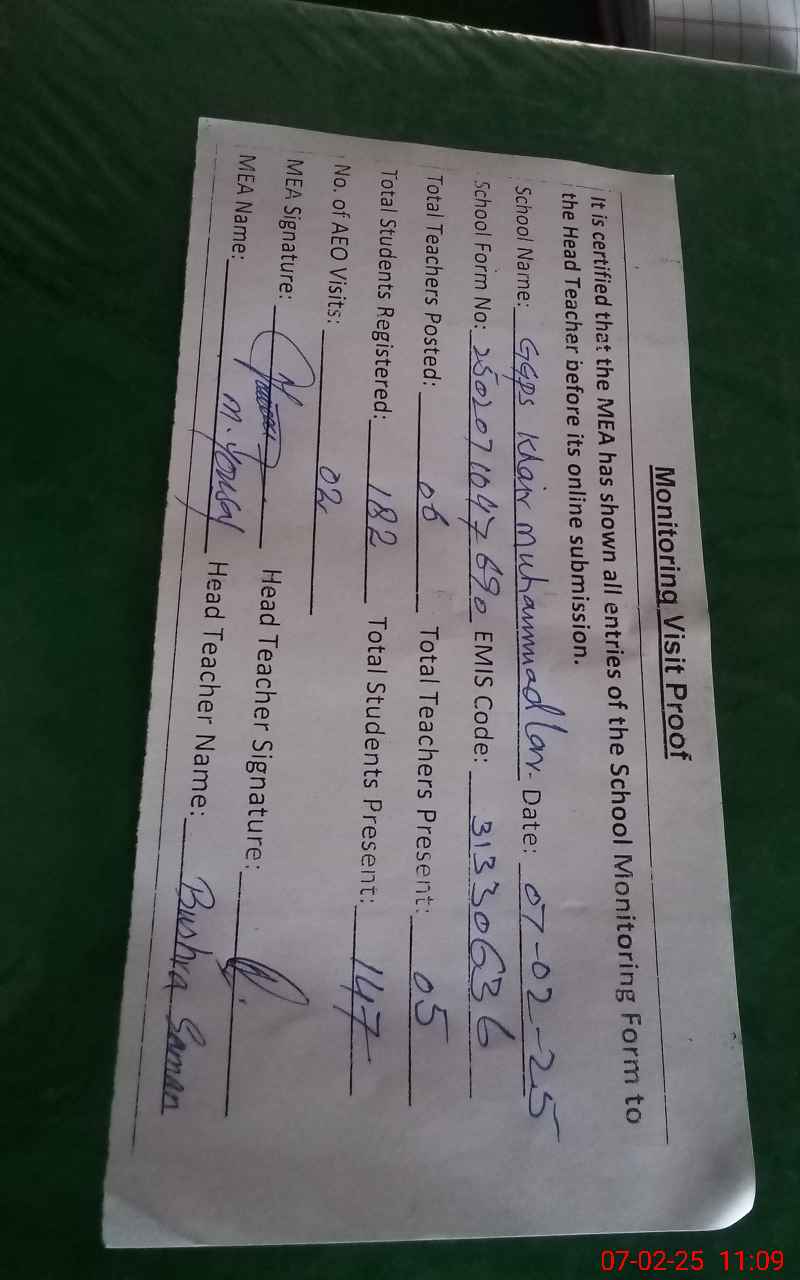 Monitoring Visit Proof
It is certified that the MEA has shown all entries of the School Monitoring Form to
the Head Teacher before its online submission.
School Name: GGPS Khair Muhammad Lar. Date: 07-02-25
School Form No: 2502071047690 EMIS Code: 31330636
Total Teachers Posted: 06 Total Teachers Present: 05
Total Students Registered: 182 Total Students Present: 147
No. of AEO Visits: 02
MEA Signature: Head Teacher Signature:
MEA Name: M. Yousaf Head Teacher Name: Bushra Saman
07-02-25 11:09